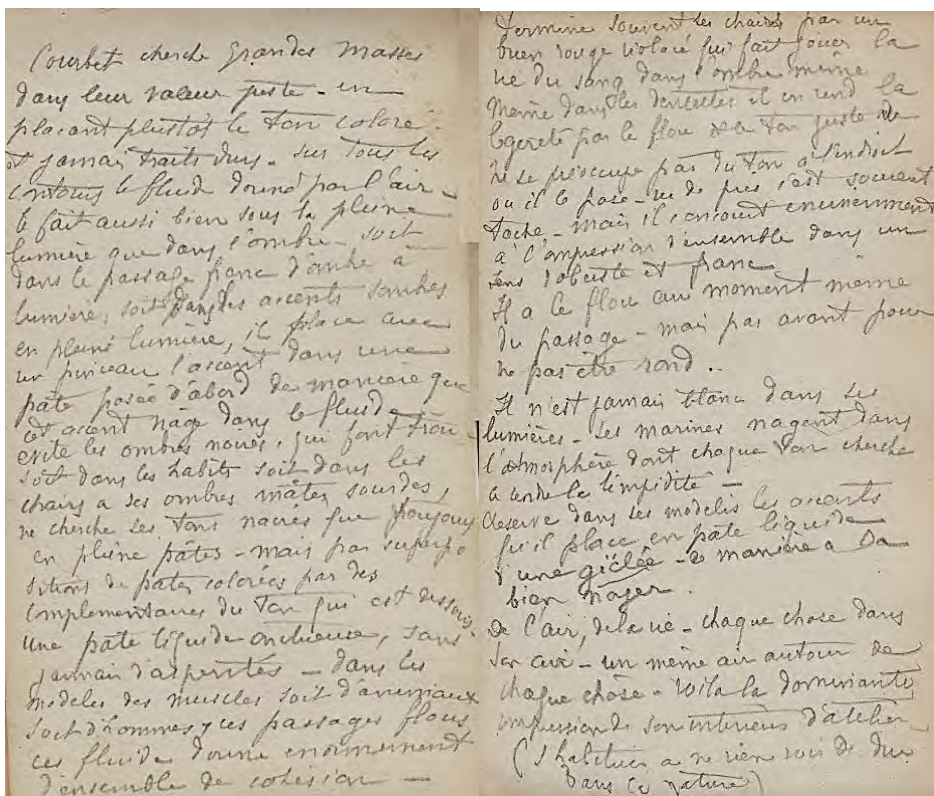 Courbet cherche grandes masses
dans leur valeur juste - en
plaçant plustôt le ton coloré -
et jamais traits durs - sur tous les
contours le fluide donné par l'air -
le fait aussi bien sous la pleine
lumière que dans l'ombre - soit
dans le passage franc d'ombre à
lumière, soit dans des accents sombres
en pleine lumière, il place avec
un pinceau l'accent dans une
pâte posée d'abord de manière que
cet accent nage dans le fluide
evite les ombres noires, qui font trou -
soit dans les habits soit dans les
chairs a ses ombres mâtes sourdes,
ne cherche ses tons nacrés que toujours
en pleine pâtes - mais par superpo
sitions de pates colorées par des
complementaires du ton qui est dessous.
une pâte liquide onctueuse, sans
jamais d'asperités - dans les
modelés des muscles soit d'animaux
soit d'hommes ces passages flous
ces fluide donne enormement
d'ensemble de cohésion -
termine souvent ses chairs par un
bien rouge violacé qui fait jouer la
vie du sang dans l'ombre même
Même dans les dentelles il en rend la
legereté par le flou de ton juste
ne se préoccupe pas du ton à l'endroit
ou il le pose - vu de près c'est souvent
tache - mais il concourt enormement
à l'impression d'ensemble dans un
sens robuste et franc
Il a le flou au moment même
du passage - mais pas avant pour
ne pas être rond ..
Il n'est jamais blanc dans ses
lumières - Ses marines nagent dans
l'atmosphère dont chaque ton cherche
a rendre la limpidité -
Reserve dans ses modelés les accents
qu'il place en pâte liquide
d'une giclée - de manière a
bien nager .
De l'air, de la vie - chaque chose dans
son air - un même air autour de
chaque chose - Voila la dominante
impression de son interieur d'atelier
(S'habituer a ne rien voir de dur
dans la nature)